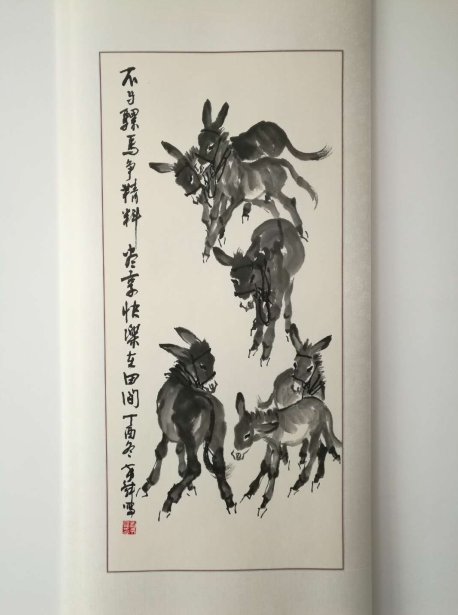 不与骡马争精料 尝享快乐在田间 丁酉冬